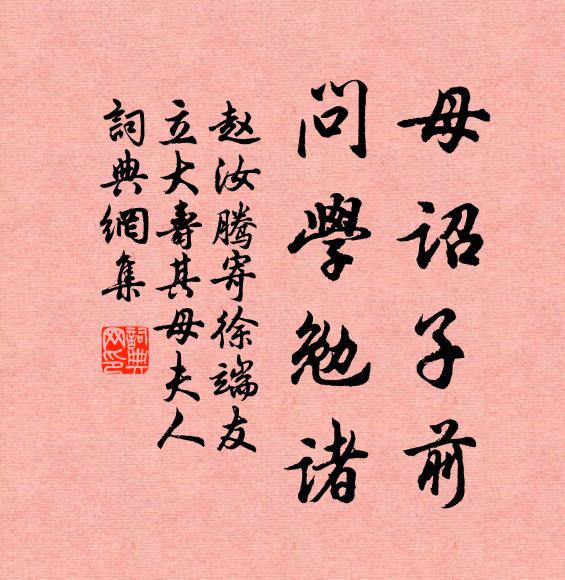 母詔子前
問學勉諸
赵汝腾寄徐端友
立大壽其母夫人
詞典網集
詞典网印